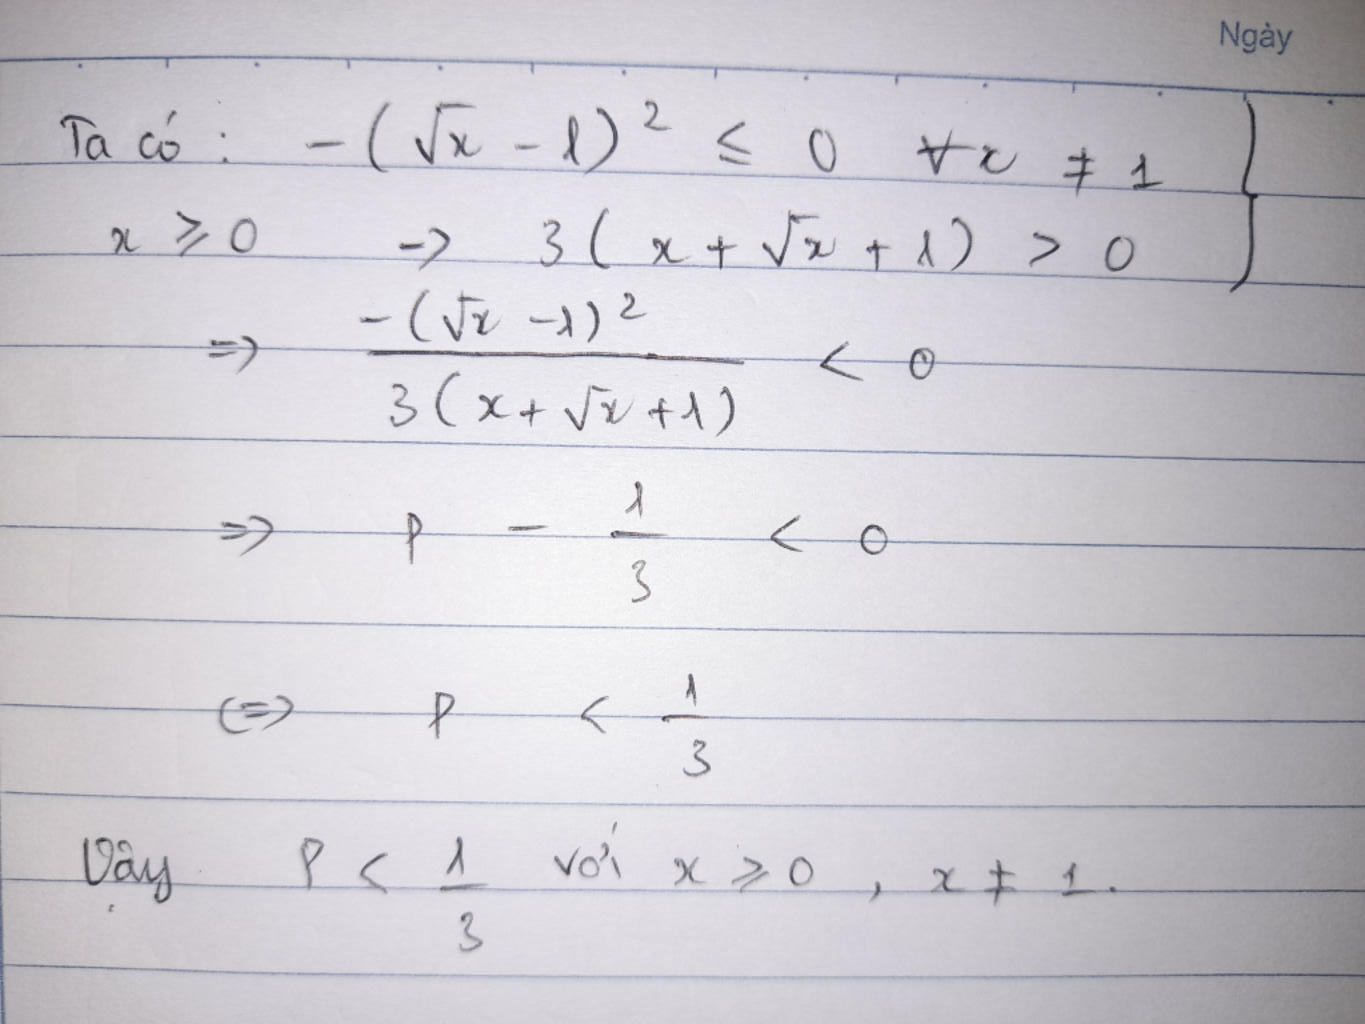 Ngày
Ta có : -(√x - 1)² ≤ 0 ∀x ≠ 1
x ⩾ 0 -> 3(x + √x + 1) > 0
=> -(√x - 1)² / 3(x + √x + 1) < 0
=> P - 1/3 < 0
<=> P < 1/3
Vậy P < 1/3 với x ⩾ 0, x ≠ 1.